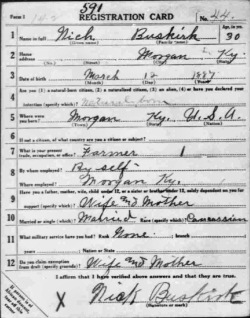 Form 1
591
REGISTRATION CARD
No. 44
Age, in yrs.
1 Name in full Nick Buskirk 30
(Given name) (Family name)
2 Home address Morgan Ky
3 Date of birth March 12 1887
(Month) (Day) (Year)
4 Are you (1) a natural-born citizen, (2) a naturalized citizen, (3) an alien, (4) or have you declared your intention (specify which)? natural born
5 Where were you born? Morgan Ky. U.S.A.
(Town) (State) (Nation)
6 If not a citizen, of what country are you a citizen or subject?
7 What is your present trade, occupation, or office? Farmer
8 By whom employed? By self
Where employed? Morgan Ky.
9 Have you a father, mother, wife, child under 12, or a sister or brother under 12, solely dependent on you for support (specify which)? Wife and Mother
10 Married or single (which)? Married Race (specify which)? Caucassian
11 What military service have you had? Rank None ; branch
years ; Nation or State
12 Do you claim exemption from draft (specify grounds)? Wife and Mother
I affirm that I have verified above answers and that they are true.
X Nick Buskirk
(Signature or mark)